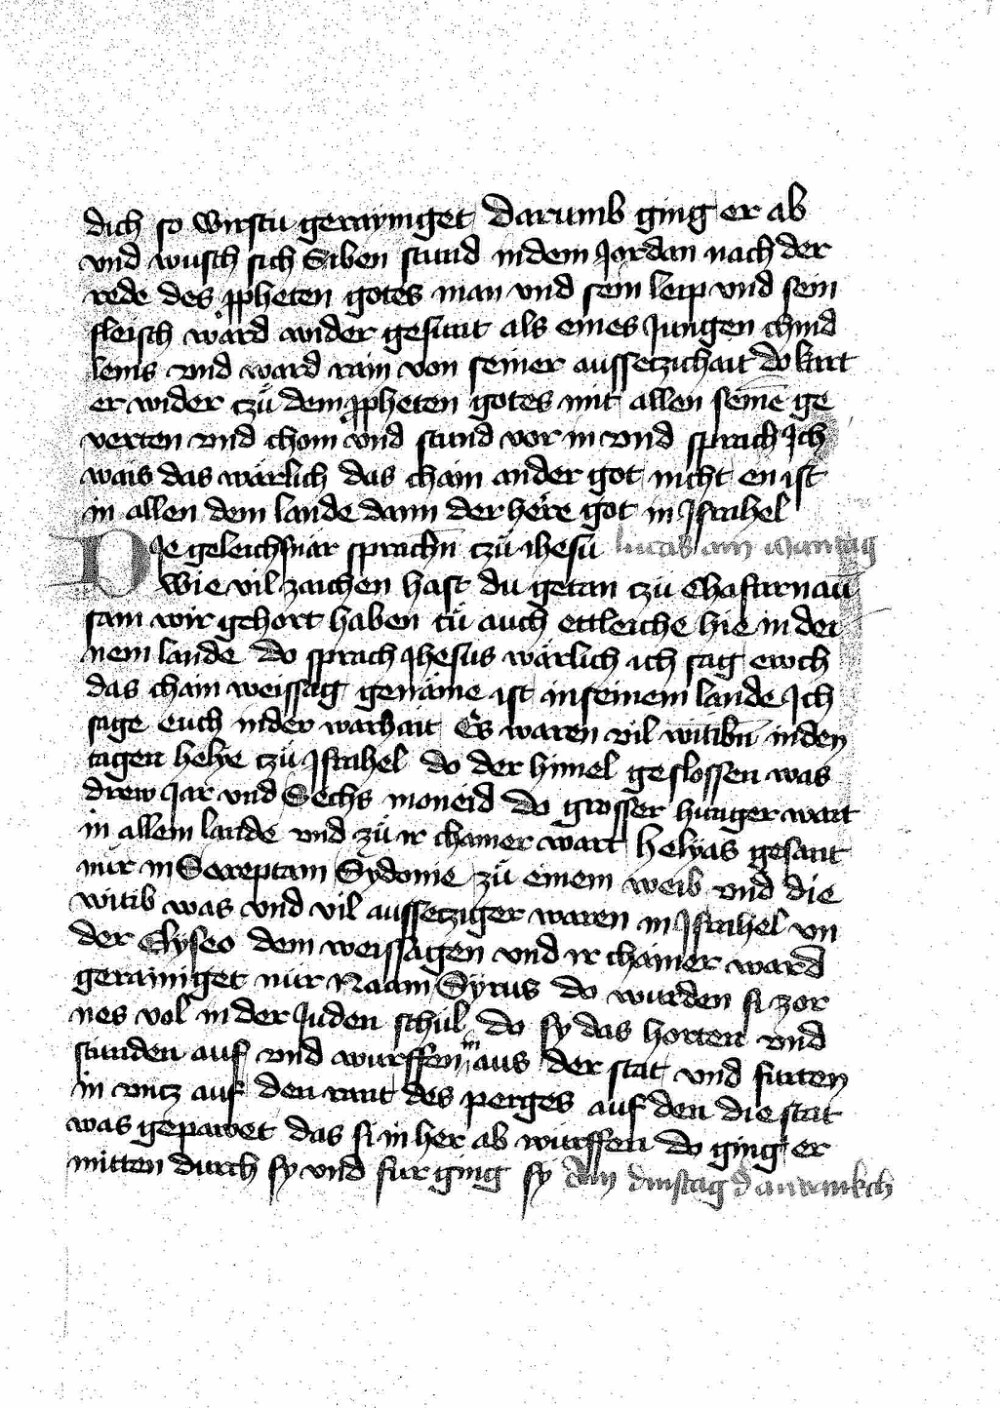 dich so wirstu gerayniget Darumb ging er ab
vnd wusch sich Siben stund in dem Jordan nach der
rede des ꝓpheten gotes man vnd sein leip vnd sein
fleisch ward wider gesunt als eines Jungen chind
leins vnd ward rain von seiner aussetzichait do kart
er wider czu̍ dem ꝓpheten gotes mit allen seinē ge
verten vnd chom vnd stund vor in vnd sprach Ich
wais das wärlich das chain ander got nicht en ist
in allen dem lande dann der here got in Jsrahel
DJe geleichsnar sprachn̄ czů ihesu lucas am mantag
Wie vil zaichen hast du getan czu Chafarnau
sam wir gehort haben tů auch ettleiche hie in dei
nem lande do sprach Jhesus wärlich ich sag ewch
das chain weissag genäme ist in seinem lande Ich
sage euch in der warhait Es waren vil witibn̄ in den
tagen helye czů Jsrahel do der himel geslossen was
drew Jar vnd Sechs moneid do grosser hunger wart
in allem lande vnd zů ir chainer wart helyas gesant
nur in Sareptam Sydonie zů einem weib vnd die
witib was vnd vil aussetziger waren in Jsrahel vn
der Elyseo dem weissagen vnd ir chainer ward
gerainiget nur Naam Syrus do wurden si zor
nes vol in der Juden schul do sy das horten vnd
stunden auf vnd wurffen in aus der stat vnd furten
in vncz auf den rant des perges auf den die stat
was gepawet das si in her ab wurffen do ging er
mitten durch sy vnd fur ging sy Am dinstag